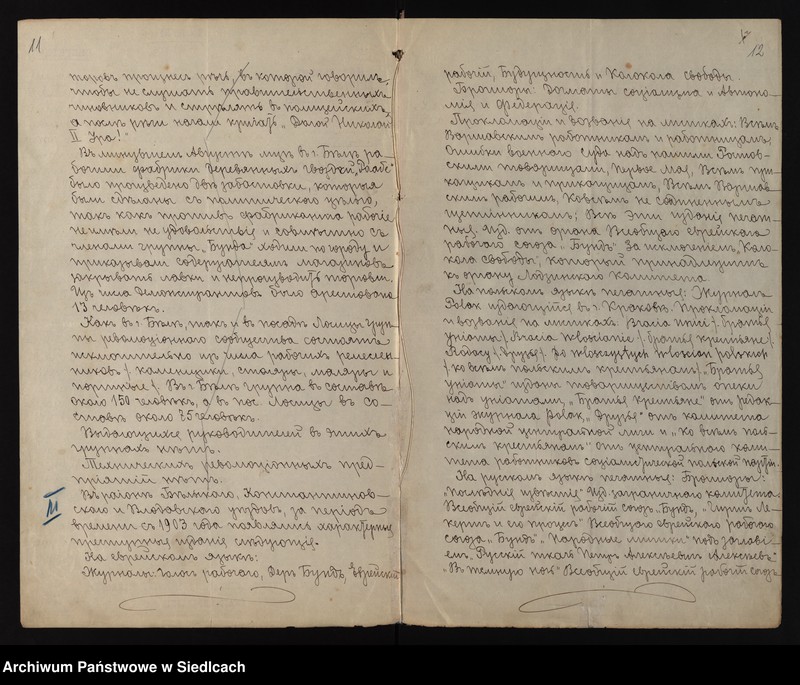 11
торовъ произнесъ рѣчь, въ которой говорилъ,
чтобы не слушать правительственныхъ
чиновниковъ и стрѣлять въ полицейскихъ,
а послѣ рѣчи начали кричать „Долой Николай
II Ура!"
Въ минувшемъ Августѣ мѣс. въ г. Бѣлѣ ра-
бочими фабрики деревянныхъ гвоздей „Раабе"
было произведено двѣ забастовки, которыя
были сдѣланы съ политическою цѣлью,
такъ какъ противъ фабриканта рабочіе
не имѣли неудовольствія и совмѣстно съ
членами группы „Бунда" ходили по городу и
приказывали содержателямъ магазиновъ
закрывать лавки и не производить торговли.
Изъ числа демонстрантовъ было арестовано
13 человѣкъ.
Какъ въ г. Бѣлѣ, такъ и въ посадѣ Лосицы груп-
пы революціоннаго сообщества состоятъ
исключительно изъ числа рабочихъ ремеслен-
никовъ / каменщики, столяры, маляры и
портные /. Въ г. Бѣлѣ группа въ составѣ
около 150 человѣкъ, а въ пос. Лосицы въ со-
ставѣ около 75 человѣкъ.
Выдающихся руководителей въ этихъ
группахъ нѣтъ.
Техническихъ революціонныхъ пред-
пріятій нѣтъ.
Въ районѣ Бѣльскаго, Константинов-
скаго и Влодавскаго уѣздовъ, за періодъ
времени съ 1903 года появлялись характерныя
преступныя изданія слѣдующія:
На еврейскомъ языкѣ:
Журналы: Голосъ рабочаго, Деръ Бундъ, Еврейскій
12
рабочій, Будущность и Колокола свободы.
Брошюры: Догматы соціализма и Автоно-
мія и Федерація.
Прокламаціи и воззванія на листкахъ: Всѣмъ
Варшавскимъ работникамъ и работницамъ,
Ошибки военнаго суда надъ нашими Ростов-
скими товарищами, Первое Мая, Всѣмъ при-
кащикамъ и прикащицамъ, Всѣмъ Варшав-
скимъ рабочимъ, Ко всѣмъ не сбитнымъ
щетинникамъ; Всѣ эти изданія печат-
ныя. Изд. отъ органа Всеобщаго еврейскаго
рабочаго союза „Бундъ" за исключеніемъ „Коло-
кола свободы", который принадлежитъ
къ органу Лодзинскаго Комитета.
На польскомъ языкѣ печатные: Журналъ
Polak издающійся въ г. Краковѣ. Прокламаціи
и воззванія на листкахъ: Bracia Unici / братья
уніаты /, Bracia włościanie / братья крестьяне /,
Rodacy / друзья /, Do wszystkich włościan polskich
/ ко всѣмъ польскимъ крестьянамъ /. „Братья
уніаты" изданы товариществомъ опеки
надъ уніатами, „Братья крестьяне" отъ редак-
ціи журнала Polak, „Друзья" отъ комитета
народной центральной лиги и „Ко всѣмъ поль-
скимъ крестьянамъ" отъ центральнаго коми-
тета работниковъ соціалистической польской партіи.
На русскомъ языкѣ печатныя: Брошюры:
„Послѣднія извѣстія" Изд. заграничнаго комитета
Всеобщій еврейскій рабочій союзъ „Бундъ", „Гиршъ Ле-
кертъ и его процесъ" Всеобщаго еврейскаго рабочаго
союза „Бундъ" „Народные листки" подъ заглаві-
емъ „Русскій ткачъ Петръ Алексѣевичъ Алексѣевъ"
„Въ темную ночь" Всеобщій еврейскій рабочій союзъ
Archiwum Państwowe w Siedlcach